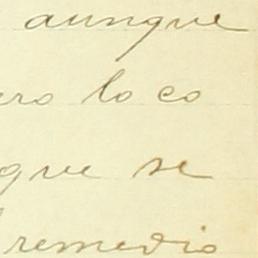 aunque
ero lo co
que se
remedio